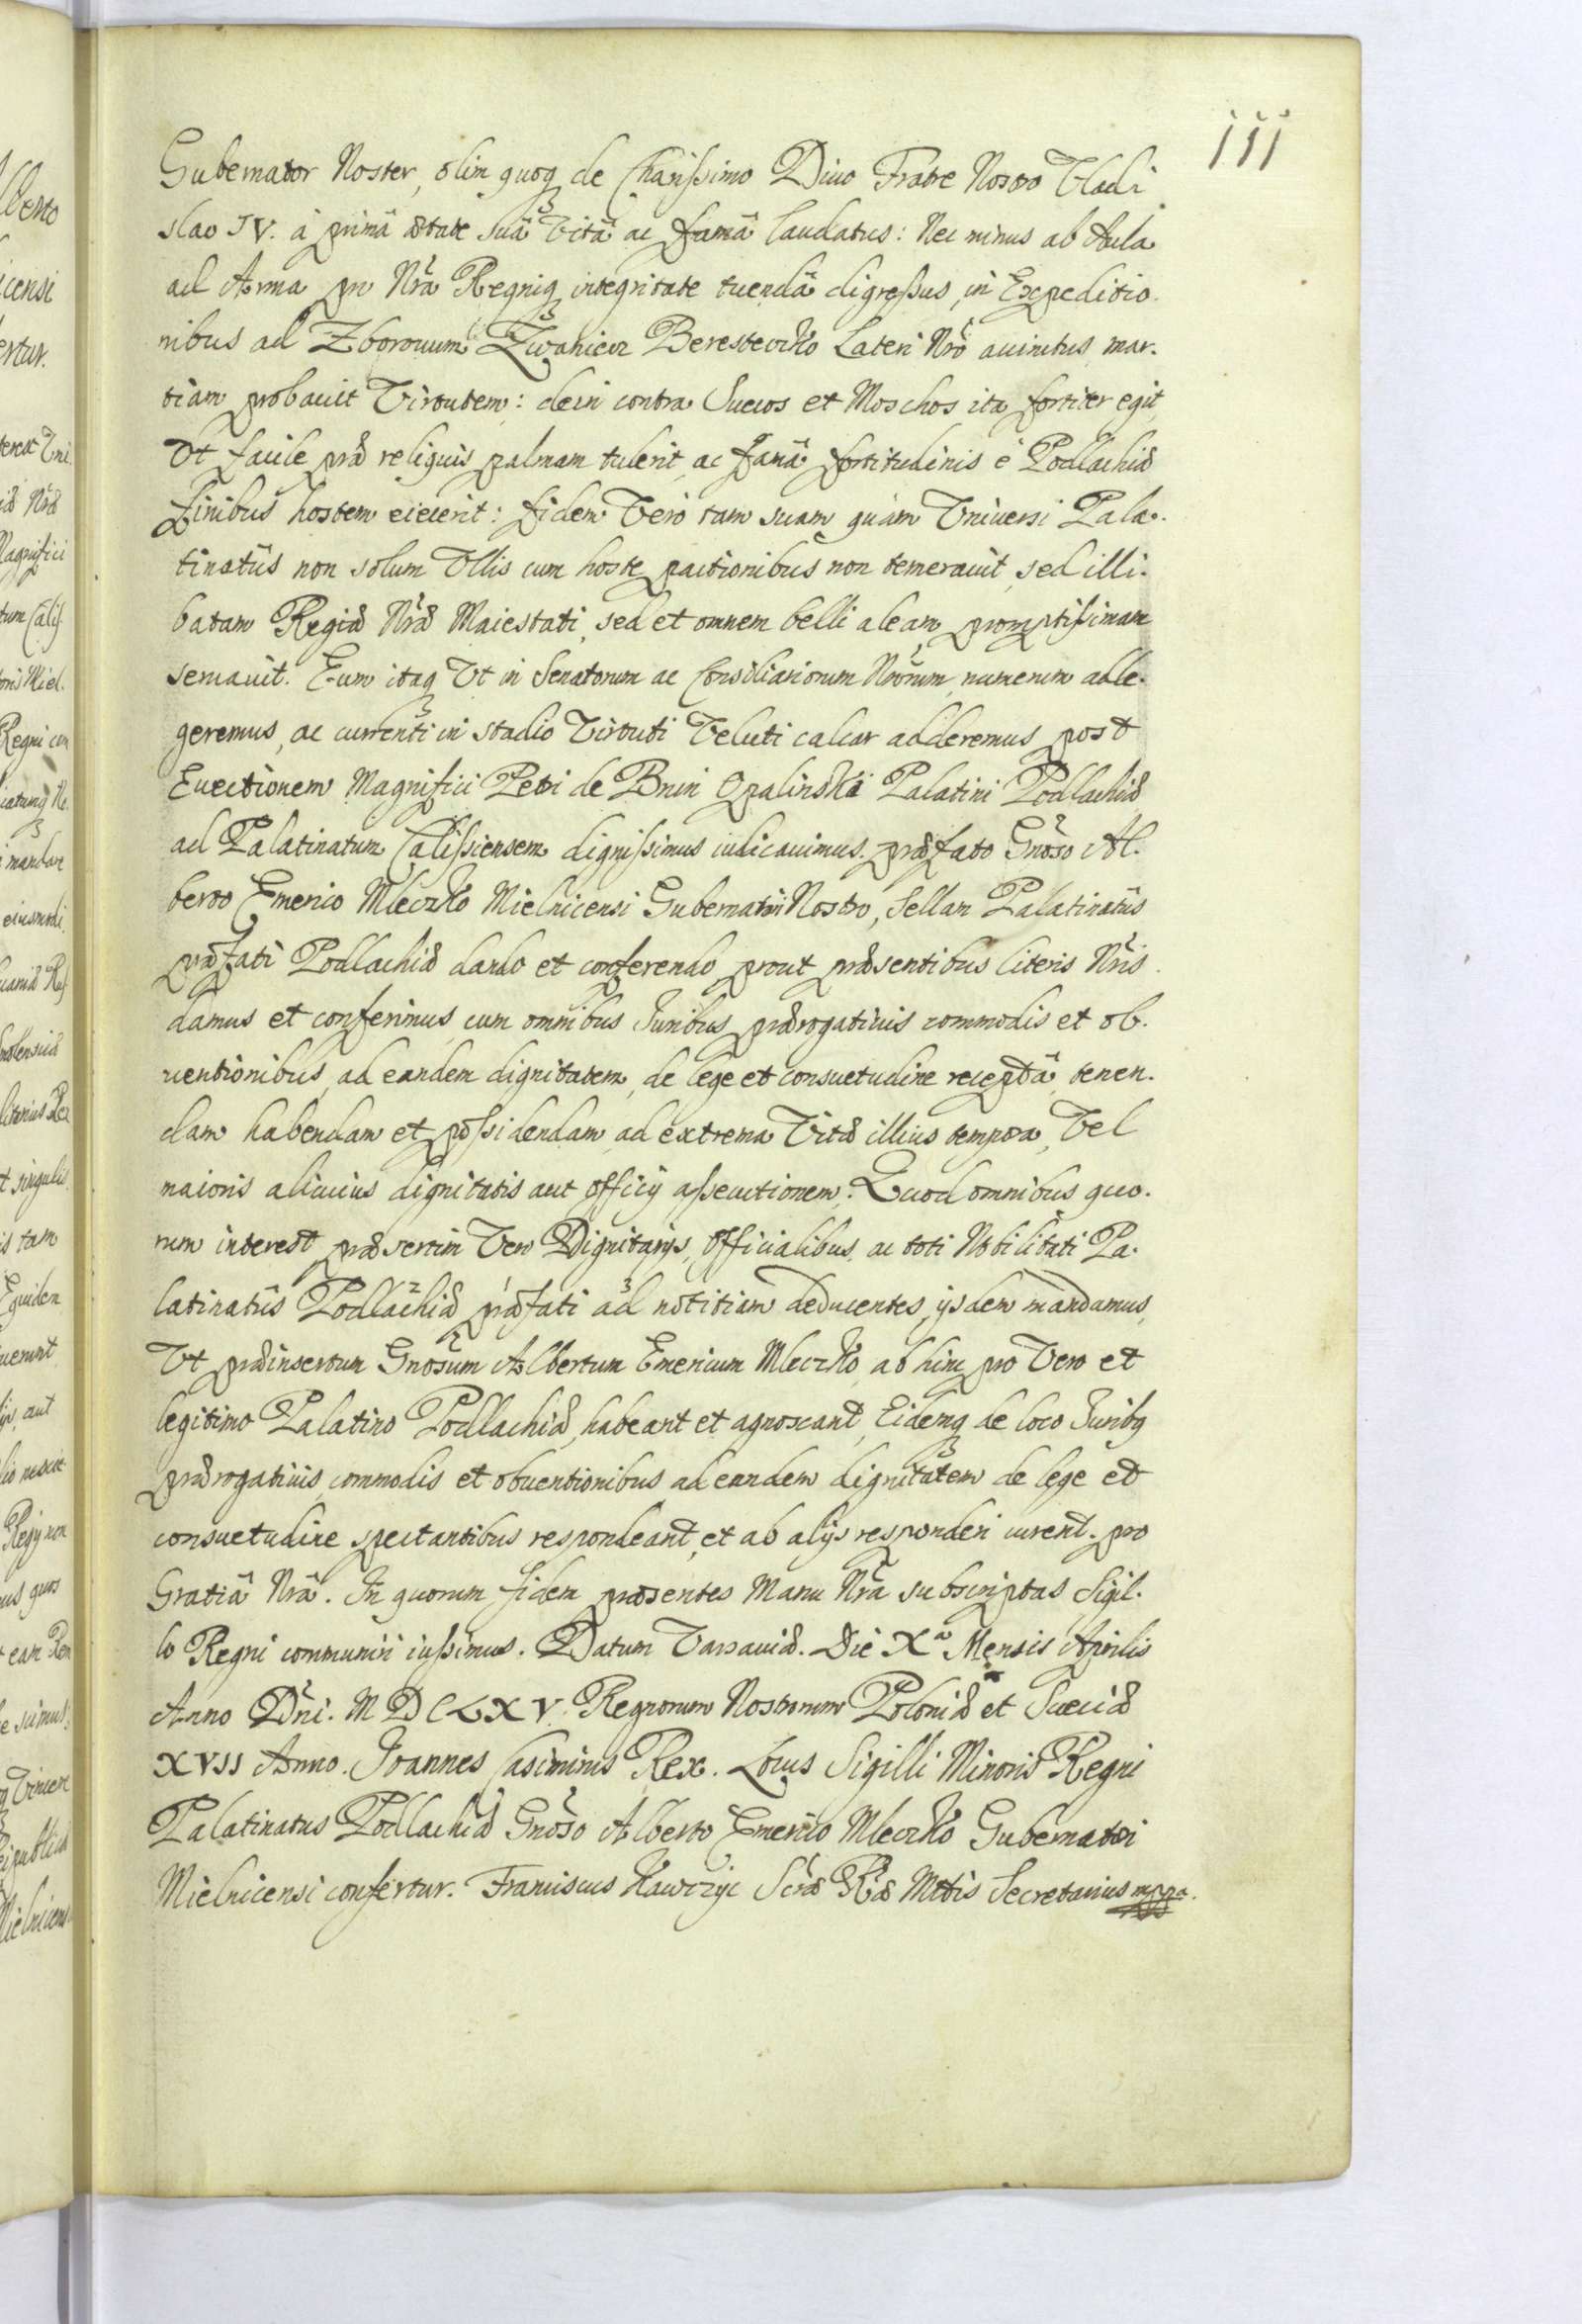 111
Gubernator Noster, olim quoq de Charißimo Diuo Fratre Nostro Vladi
slao IV. à primâ ætate suâ Vitâ ac famâ laudatus: Nec minus ab Aula
ad Arma pro Nrã Regniq integritate tuendâ digreßus, in Expeditio.
nibus ad Zborouum Zwaniecz Beresteczko Lateri Nrõ auinctus mar.
tiam probauit Virtutem: dein contra Suecos et Moschos ita fortiter egit,
Vt facile præ reliquis palmam tulerit, ac famâ fortitudinis è Podlachiæ
finibus hostem eiecerit: fidem Vero tam suam quàm Vniuersi Pala.
tinatûs non solum Vllis cum hoste pactionibus non temerauit, sed illi.
batam Regiæ Nræ Maiestati, sed et omnem belli aleam promptißimam
seruauit. Eum itaq Vt in Senatorum ac Consiliariorum Nrorum numerum adle.
geremus, ac currenti in stadio Virtuti Veluti calcar adderemus post
Euectionem Magnifici Petri de Bnin Opalinski Palatini Podlachiæ
ad Palatinatum Calißiensem dignißimus iudicauimus. præfato Gnoso Al.
berto Emerico Mleczko Mielnicensi Gubernatori Nostro, Sellam Palatinatûs
præfati Podlachiæ dando et conferendo prout præsentibus literis Nris
damus et conferimus, cum omnibus Iuribus prærogatiuis commodis et ob.
uentionibus, ad eandem dignitatem, de lege et consuetudine receptâ, tenen.
dam habendam et poßidendam, ad extrema Vitæ illius tempora, Vel
maioris alicuius dignitatis aut officij aßecutionem. Quod omnibus quo.
rum interest præsertim Vero Dignitarijs, Officialibus, ac toti Nobilitati Pa.
latinatûs Podlachiæ præfati ad notitiam deducentes, ijsdem mandamus,
Vt præinsertum Gnosum Albertum Emericum Mleczko ab hinc pro Vero et
legitimo Palatino Podlachiæ, habeant et agnoscant, Eidemq de loco Iuribq
prærogatiuis, commodis et obuentionibus ad eandem dignitatem de lege et
consuetudine spectantibus respondeant, et ab alijs responderi curent. pro
Gratiâ Nrâ. In quorum fidem præsentes Manu Nrã subscriptas, Sigil.
lo Regni communiri iußimus. Datum Varsauiæ. Die Xa Mensis Aprilis
Anno Dni. M D C L X V. Regnorum Nostrorum Poloniæ et Sueciæ
XVII Anno. Joannes Casimirus Rex. Locus Sigilli Minoris Regni
Palatinatus Podlachiæ Gnoso Alberto Emerico Mleczko Gubernatori
Mielnicensi confertur. Franciscus Kawczyc Scræ Ræ Mttis Secretarius mppa.